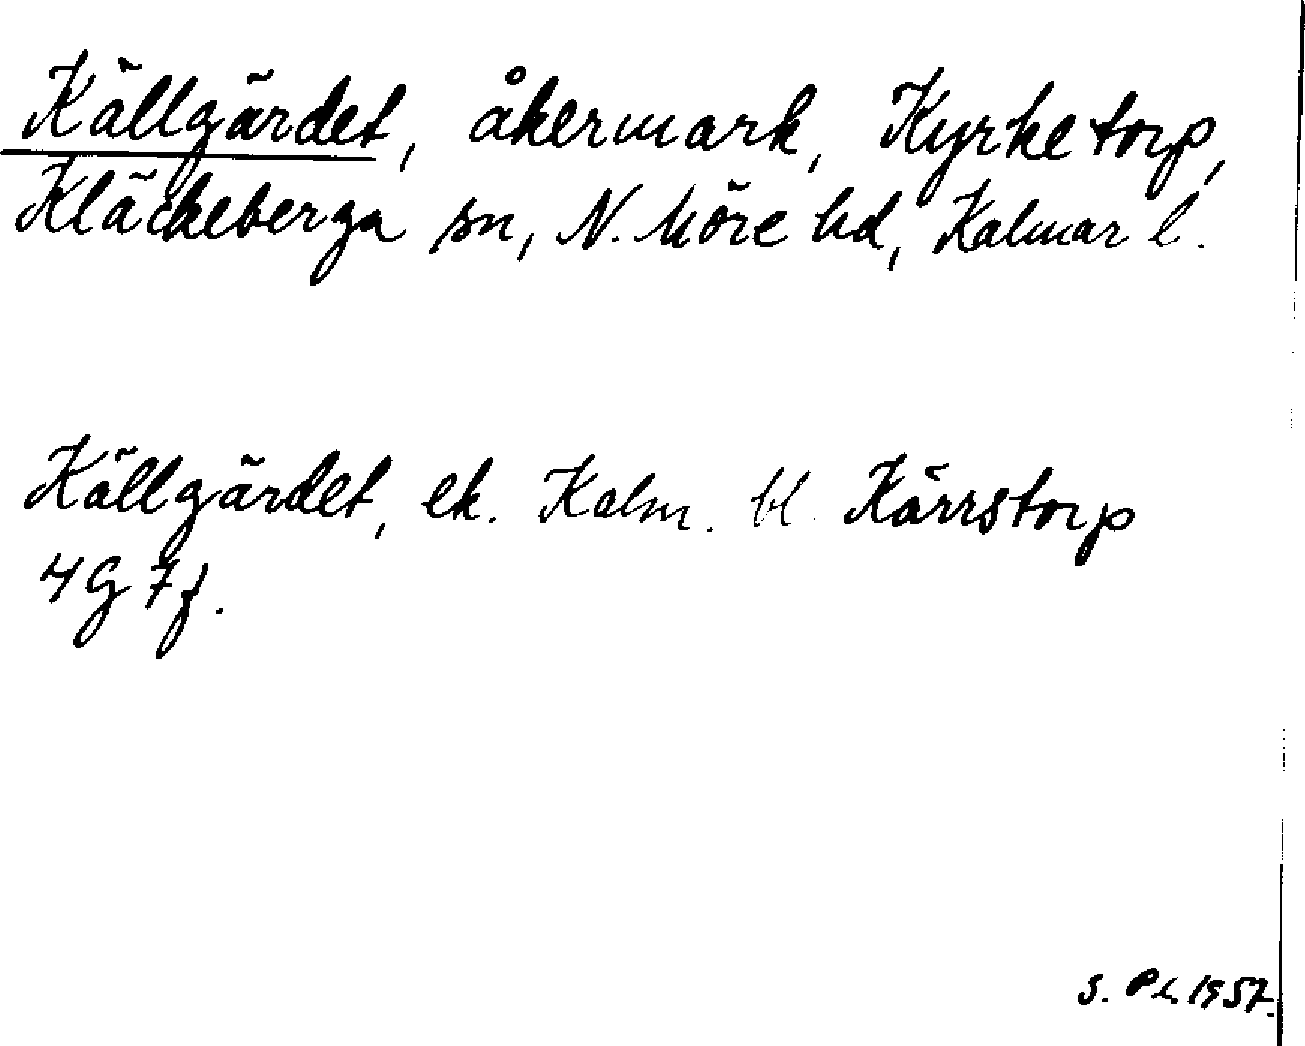 Källgärdet, åkermark, Kyrketorp,
Kläckeberga sn, N. Möre hd, Kalmar l.
Källgärdet, ek. Kalm. bl. Kärrstorp
4G 7f.
S. Pl. 1957.